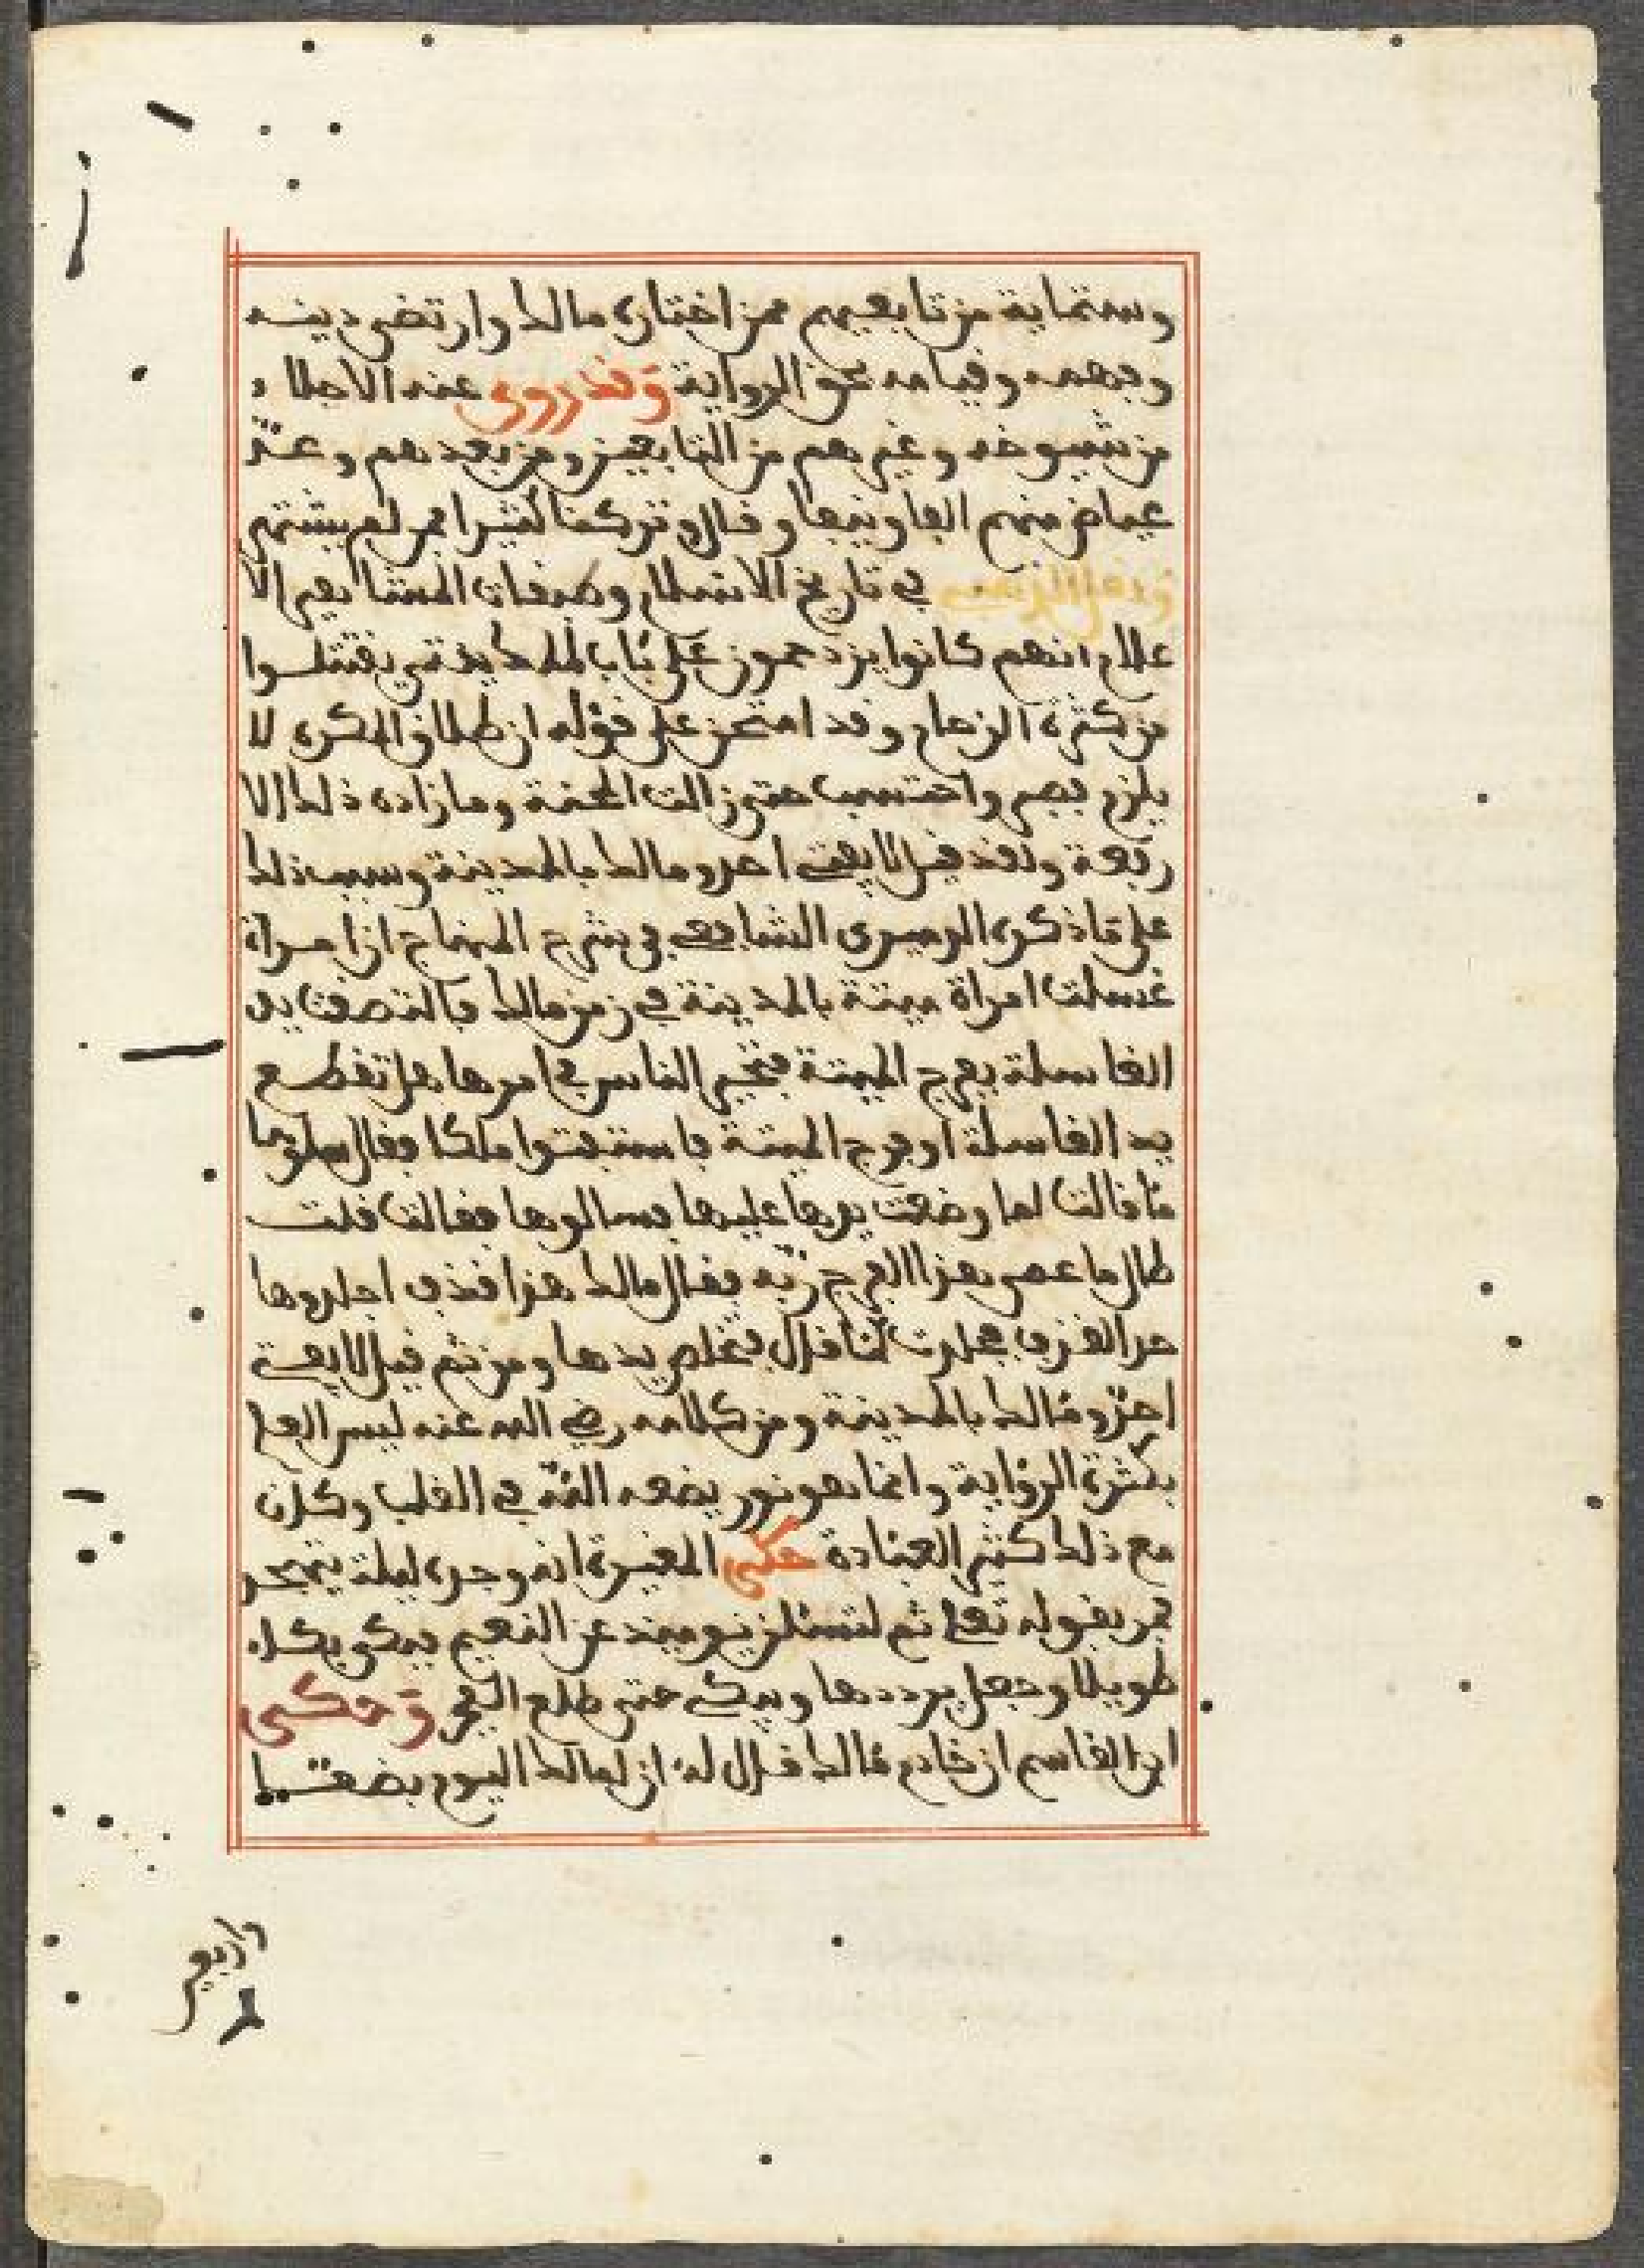 وستماية من تابعيهم ممن اختاره مالك وارتضى دينه
وفهمه وقيامه بحق الرواية وقد روى عنه الاجلاء
من شيوخه وغيرهم من التابعين ومن بعدهم وعد
عياض منهم الفا ونيفا وقال وتركنا كثيرا ممن لم يشتهر
ونقل الذهبي في تاريخ الاسلام وطبقات المشاهير الا
علام انهم كانوا يزدحمون على باب مالك حتى يقتتلوا
من كثرة الزحام وقد امتحن على قوله ان طلاق المكره لا
يلزم فصبر واحتسب حتى زالت المحنة وما زاده ذلك الا
رفعة ولقد قيل لا يفتى احد ومالك بالمدينة وسبب ذلك
على ما ذكره الدميري الشافعي في شرح المنهاج ان امراة
غسلت امراة ميتة بالمدينة في زمن مالك فالتصقت يد
الغاسلة بفرج الميتة فتحير الناس في امرها هل تقطع
يد الغاسلة او فرج الميتة فاستفتوا مالكا فقال سلوها
ما قالت لما وضعت يدها عليها فسالوها فقالت قلت
طال ما عصى هذا الفرج ربه فقال مالك هذا قذف اجلدوها
حد القذف فجلدت كما قال فتخلص يدها ومن ثم قيل لا يفتى
احد ومالك بالمدينة ومن كلامه رضي الله عنه ليس العلم
بكثرة الرواية وانما هو نور يضعه الله في القلب وكان
مع ذلك كثير العبادة حكى المغيرة انه وجده ليلة يتهجد
فمر بقوله تعلى ثم لتسئلن يوميذ عن النعيم فبكى بكاء
طويلا وجعل يرددها ويبكي حتى طلع الفجر وحكى
ابن القاسم ان خادم مالك قال له ان لمالك اليوم بضعا
واربعين